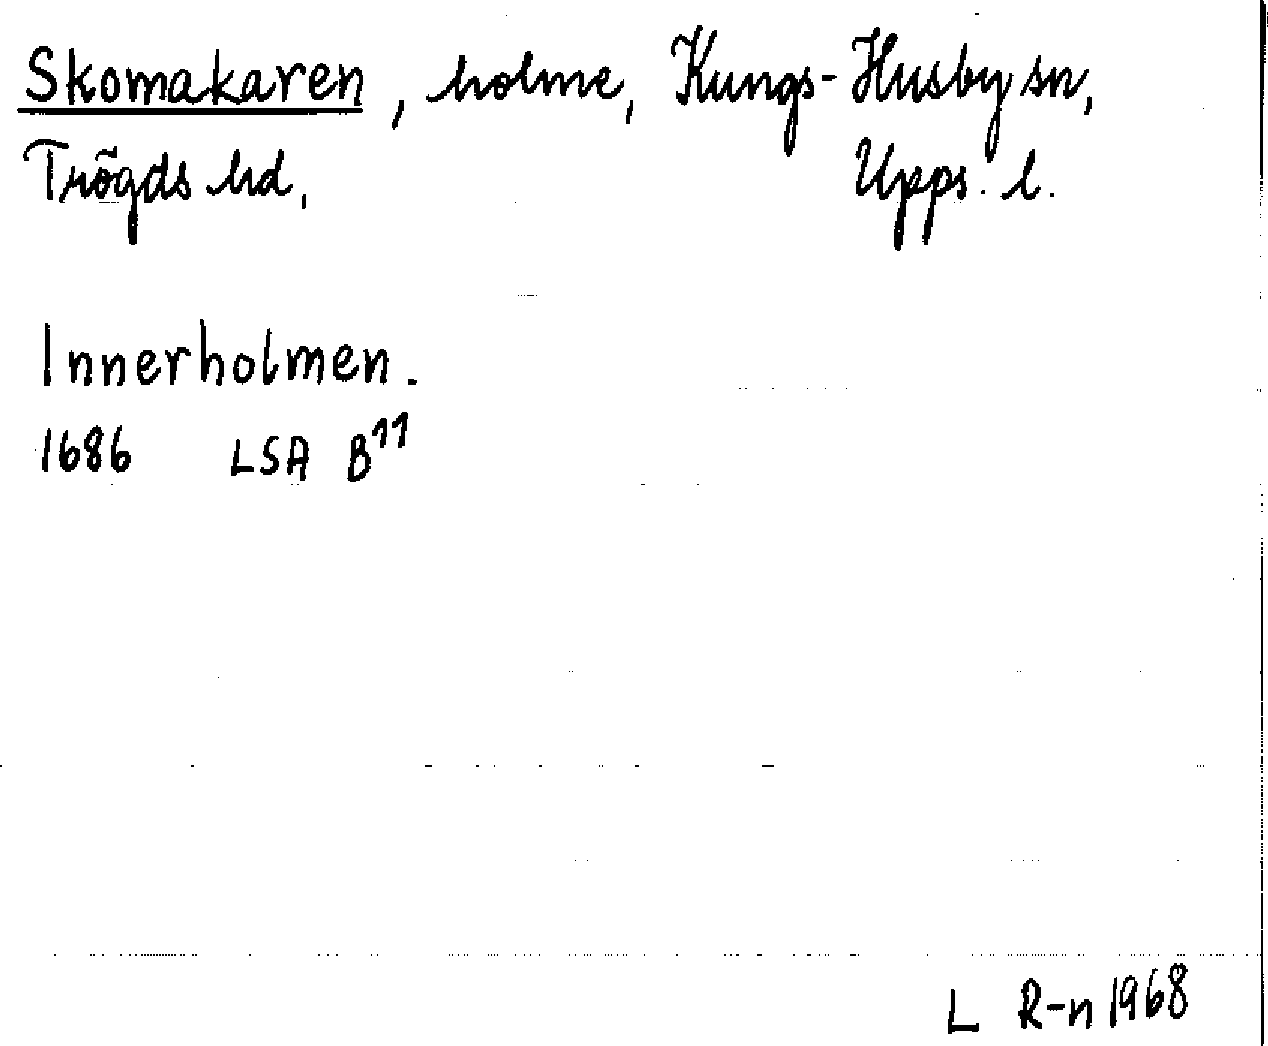 Skomakaren, holme, Kungs-Husby sn,
Trögds hd, Upps. l.
Innerholmen.
1686 LSA B¹¹
L R-n 1968